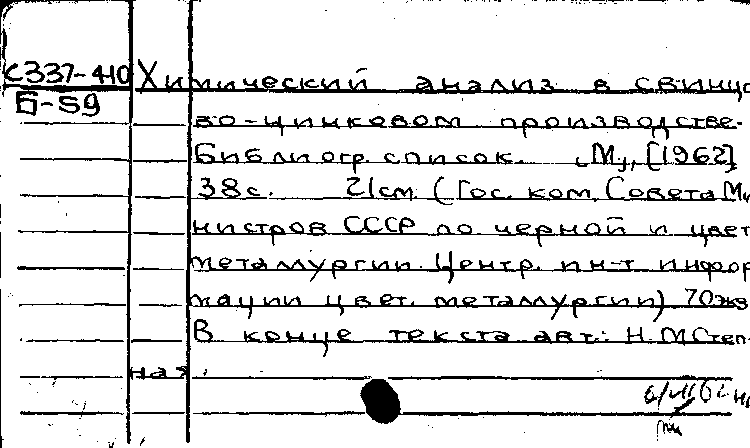 С337-410 Химический анализ в свинцо
Б-59
во-цинковом производстве.
Библиогр. список. М., [1962]
38с. 21см. (Гос. ком. Совета Ми
нистров СССР по черной и цвет
металлургии Центр. ин-т инфор
мации цвет. металлургии) 70экз
В конце текста авт.: Н.М.Степ-
ная.